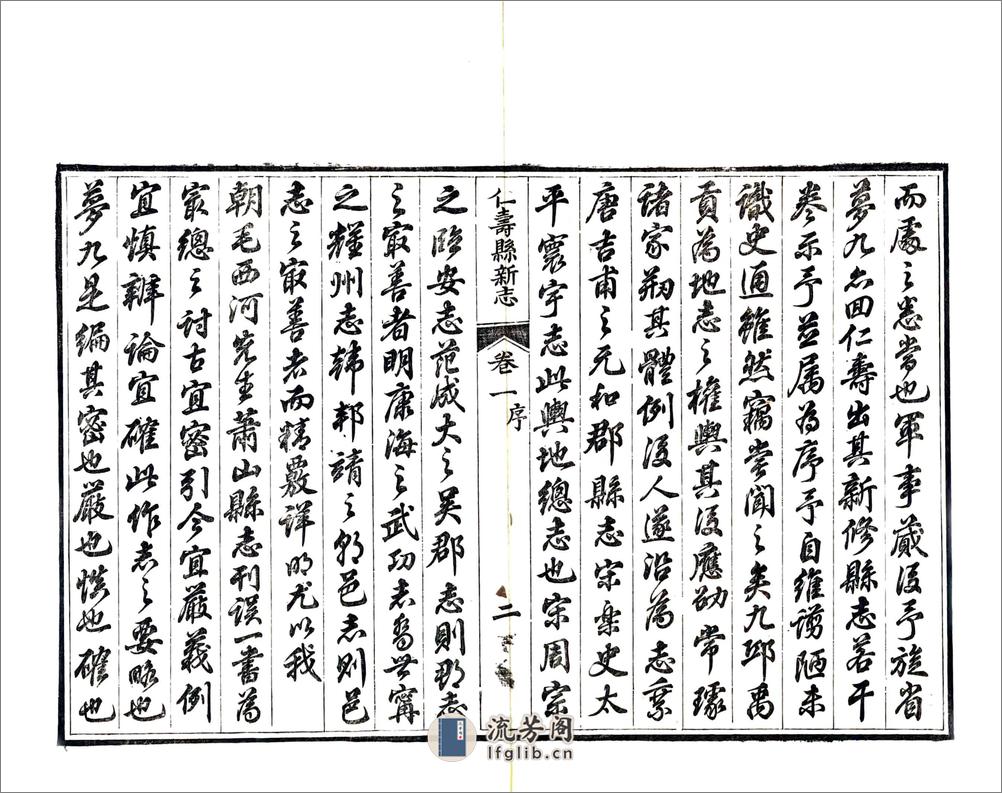 而處之泰當也軍事蕆後予旋省
夢九亦回仁壽出其新修縣志若干
卷示予並属為序予自維謭陋未
識史通雖然竊嘗聞之矣九邱禹
貢為地志之權輿其後應劭常璩
諸家剏其體例後人遂沿為志乘
唐吉甫之元和郡縣志宋樂史太
平寰宇志此輿地總志也宋周宗
仁壽縣新志 卷一 序 二
之臨安志范成大之吴郡志則郡志
之㝡善者明康海之武功志喬世寗
之耀州志韓邦靖之朝邑志則邑
志之㝡善者而精覈詳明尤以我
朝毛西河先生蕭山縣志刊误一書為
㝡總之討古宜密引今宜嚴義例
宜慎辨論宜確此作志之要略也
夢九是編其密也嚴也慎也確也
流芳阁
lfglib.cn